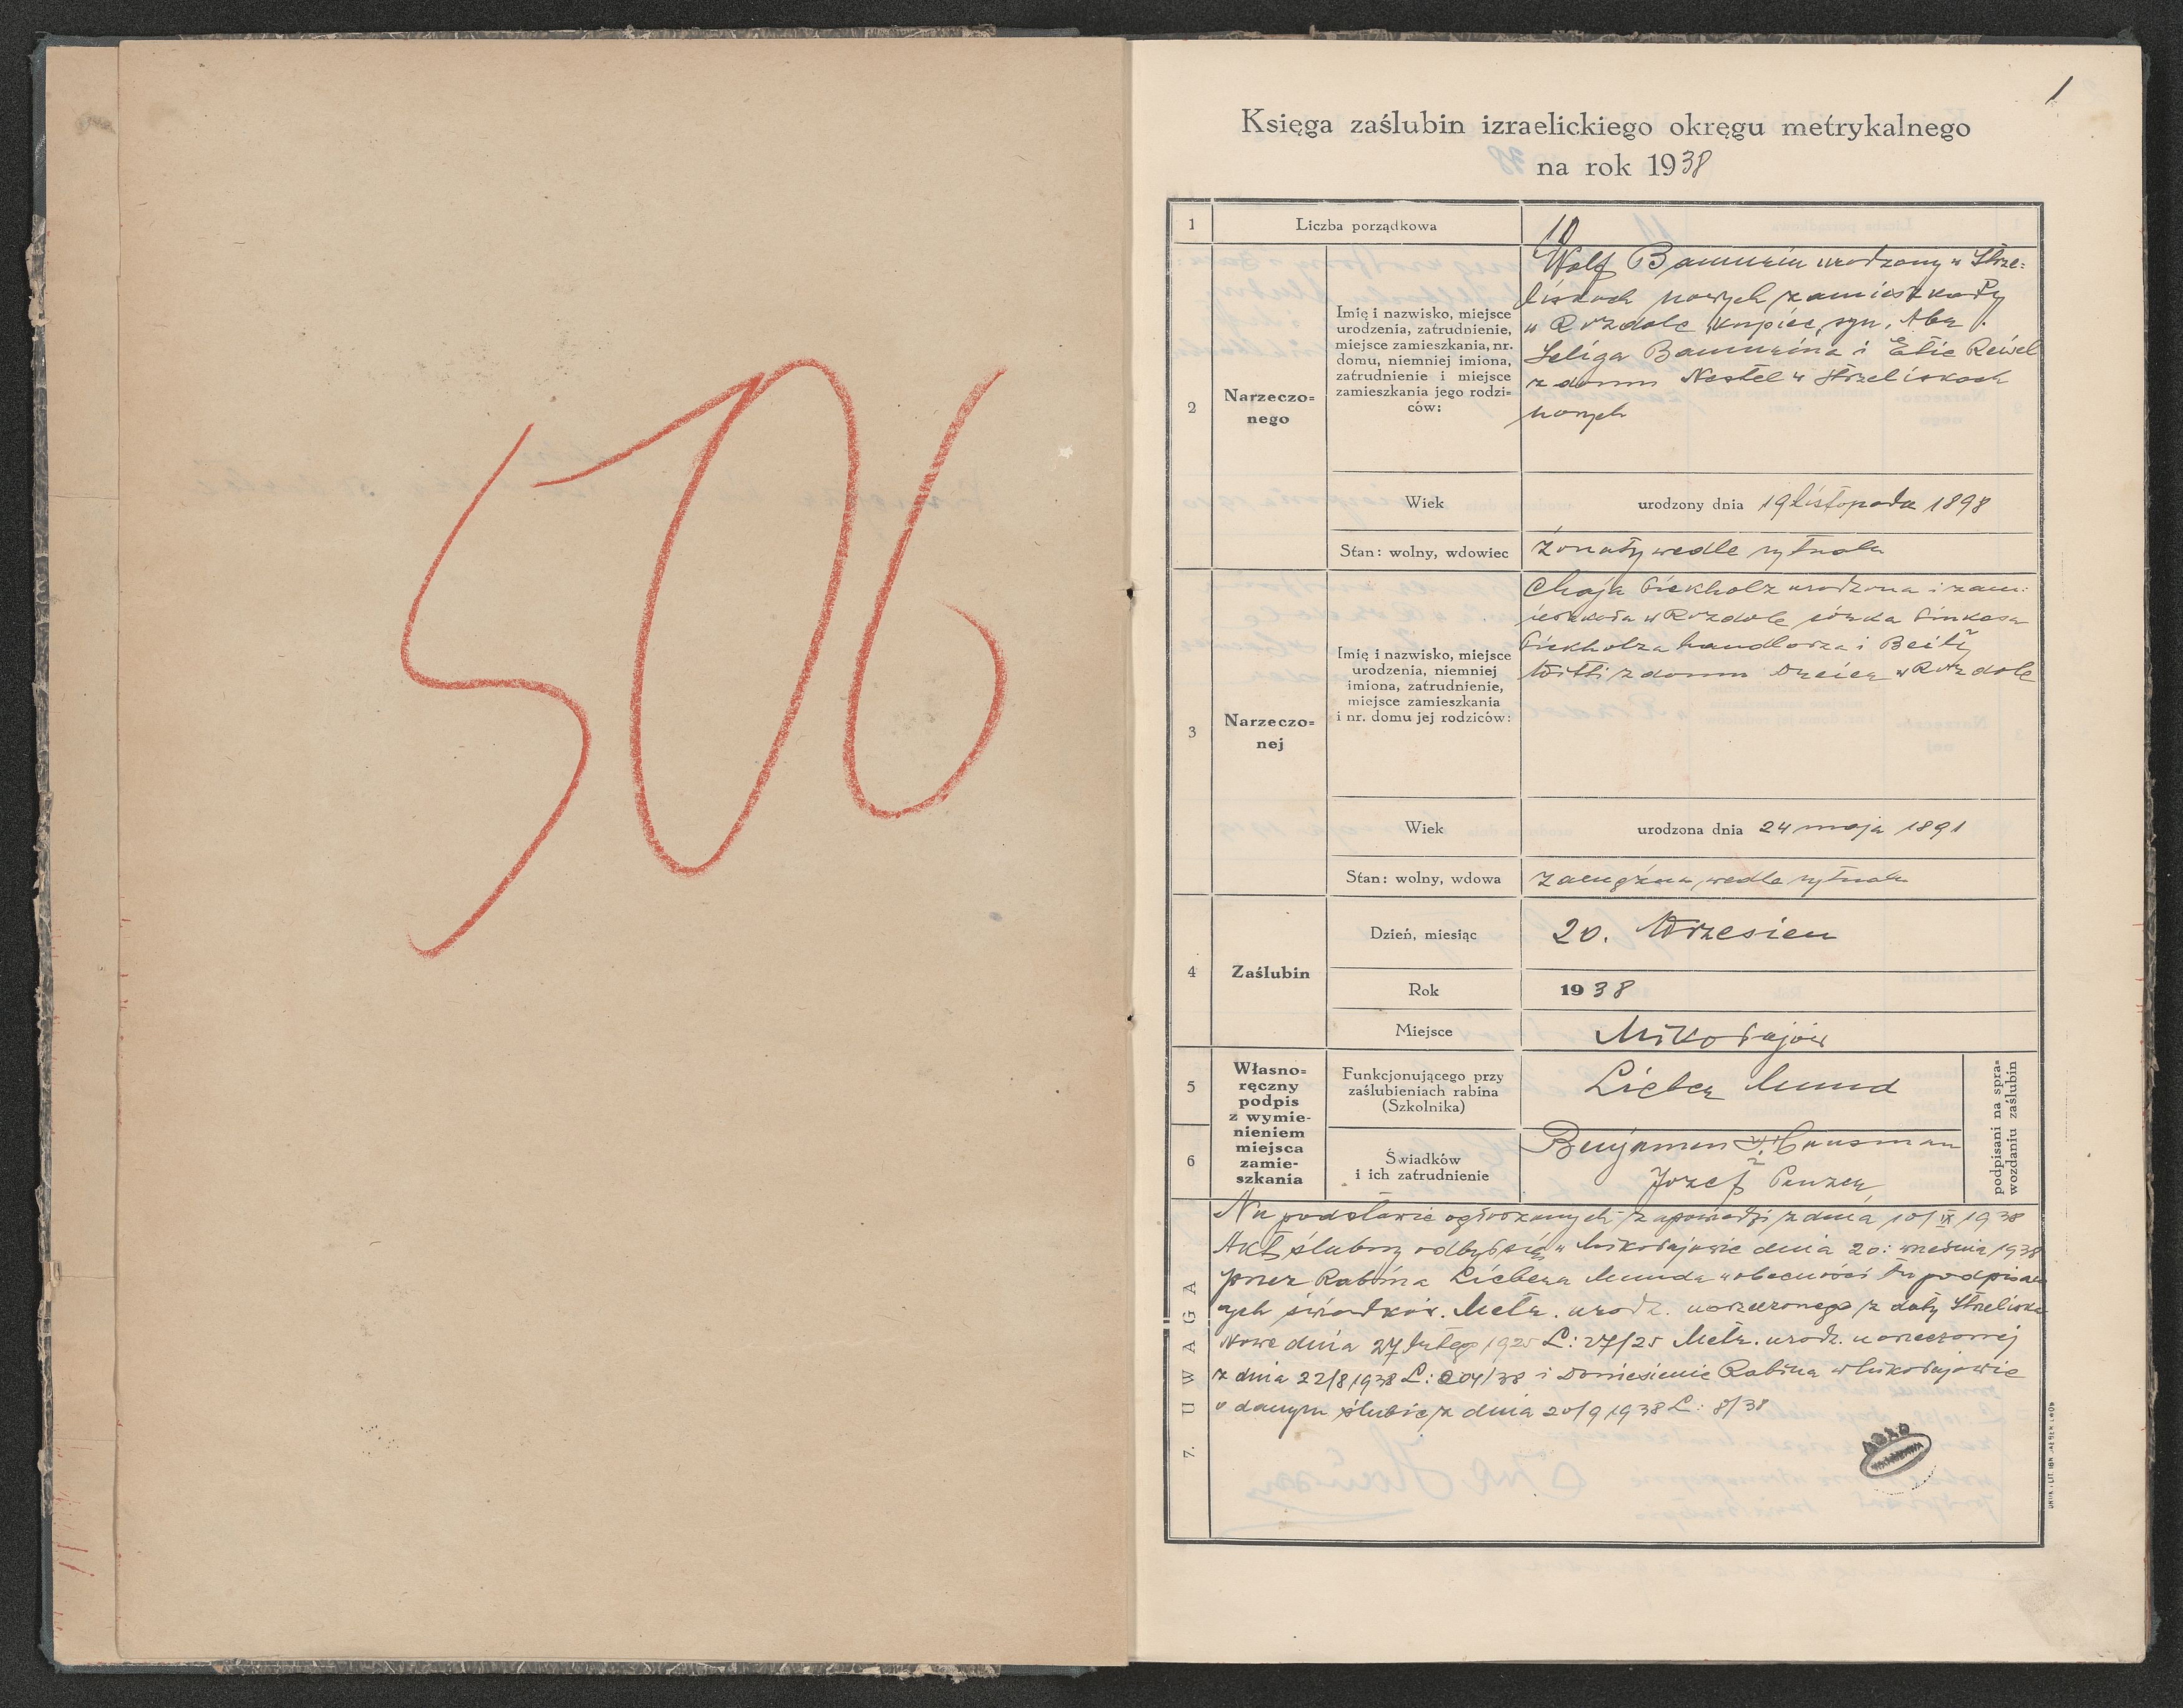 506
1
Księga zaślubin izraelickiego okręgu metrykalnego
na rok 1938
1
Liczba porządkowa
10
2
Narzeczo=
nego
Imię i nazwisko, miejsce
urodzenia, zatrudnienie,
miejsce zamieszkania, nr.
domu, niemniej imiona,
zatrudnienie i miejsce
zamieszkania jego rodzi=
ców:
Wolf urodzony w Strze=
liskach nowych zamieszkały
w Rozdole kupiec, syn
Seliga i
z domu Nestel w Strzeliskach
nowych
Wiek
urodzony dnia 19 listopada 1898
Stan: wolny, wdowiec
żonaty wedle rytuału
3
Narzeczo=
nej
Imię i nazwisko, miejsce
urodzenia, niemniej
imiona, zatrudnienie,
miejsce zamieszkania
i nr. domu jej rodziców:
Chaja urodzona i zam=
ieszkała w Rozdole córka Pinkasa
handlarza i
z domu w Rozdole
Wiek
urodzona dnia 24 maja 1891
Stan: wolny, wdowa
zamężna wedle rytuału
4
Zaślubin
Dzień, miesiąc
20. Wrzesień
Rok
1938
Miejsce
Mikołajów
5
Własno=
ręczny
podpis
z wymie=
nieniem
miejsca
zamie=
szkania
Funkcjonującego przy
zaślubieniach rabina
(Szkolnika)
Lieber Mund
podpisani na spra=
wozdaniu zaślubin
6
Świadków
i ich zatrudnienie
Benjamin
Józef
7. UWAGA
Na podstawie ogłoszonych zapowiedzi z dnia 10/IX 1938
Akt ślubny odbył się w Mikołajowie dnia 20: września 1938
przez Rabina Liebera Munda w obecności tu podpisan
ych świadków. Metr. urodz. narzeczonego z daty Strzeliska
Nowe dnia 27 lutego 1925 L: 27/25 Metr. urodz. narzeczonej
z dnia 22/8 1938 L: 204/38 i Doniesienie Rabina w Mikołajowie
o danym ślubie z dnia 20/9 1938 L: 8/38